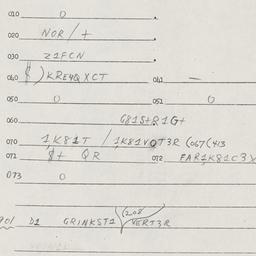 010 0
020 NOR/+
030 Z1FCN
040 $)KRE4QXCT 041 —
050 0 051 0
060 G81S+R1G+
070 1K81T / 1K81VQT3R (067(413
071 $+ QR 072 FAR1K81C3V
073 0
901 D1 GRINKST1 (208 VERT3R